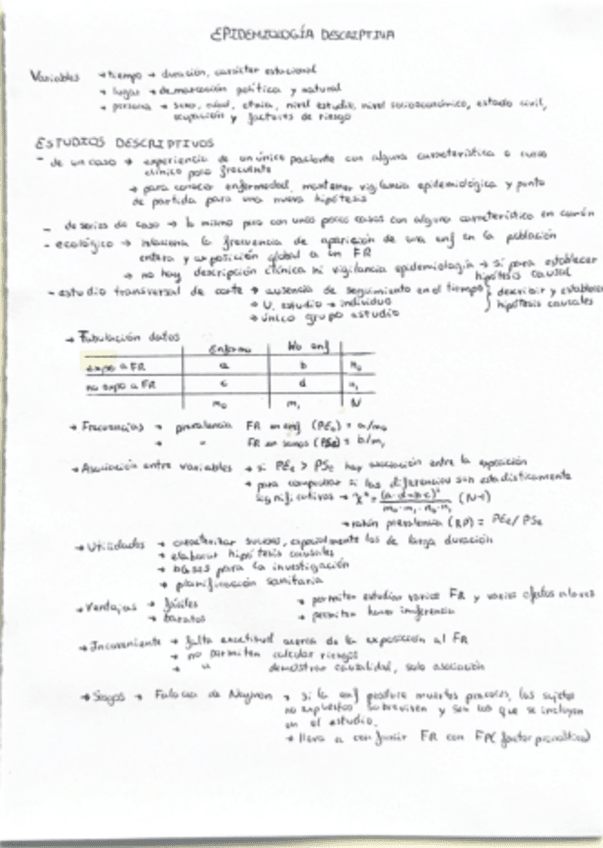 EPIDEMIOLOGÍA DESCRIPTIVA
Variables → tiempo → duración, carácter estacional
→ lugar → demarcación política y natural
→ persona → sexo, edad, etnia, nivel estudio, nivel socioeconómico, estado civil,
ocupación y factores de riesgo
ESTUDIOS DESCRIPTIVOS
- de un caso → experiencia de un único paciente con alguna característica o curso
clínico poco frecuente
→ para conocer enfermedad, mantener vigilancia epidemiológica y punto
de partida para una nueva hipótesis
- de series de caso → lo mismo pero con unos pocos casos con alguna característica en común
- ecológico → relaciona la frecuencia de aparición de una enf en la población
entera y exposición global a un FR
→ no hay descripción clínica ni vigilancia epidemiología → si para establecer
hipótesis causal
- estudio transversal de corte → ausencia de seguimiento en el tiempo } describir y establecer
→ U. estudio → individuo hipótesis causales
→ único grupo estudio
→ Tabulación datos
Enfermo No enf
expo a FR a b n₀
no expo a FR c d n₁
m₀ m₁ N
→ Frecuencias → prevalencia FR en enf (PEe) = a/m₀
→ " FR en sanos (PSe) = b/m₁
→ Asociación entre variables → si PEe > PSe hay asociación entre la exposición
→ para comprobar si las diferencias son estadísticamente
significativas → x² = (a·d-b·c)² / m₀·m₁·n₀·n₁ (N-1)
→ razón prevalencia (RP) = PEe/PSe
→ Utilidades → caracterizar sucesos, especialmente los de larga duración
→ elaborar hipótesis causales
→ bases para la investigación
→ planificación sanitaria
→ Ventajas → fáciles → permiten estudiar varios FR y varios efectos a la vez
→ baratos → permiten hacer inferencia
→ Inconveniente → falta exactitud acerca de la exposición al FR
→ no permiten calcular riesgos
→ " demostrar causalidad, solo asociación
→ Sesgos → Falacia de Neyman → si la enf produce muertes precoces, los sujetos
no expuestos sobreviven y son los que se incluyen
en el estudio.
→ lleva a confundir FR con FP (factor pronóstico)